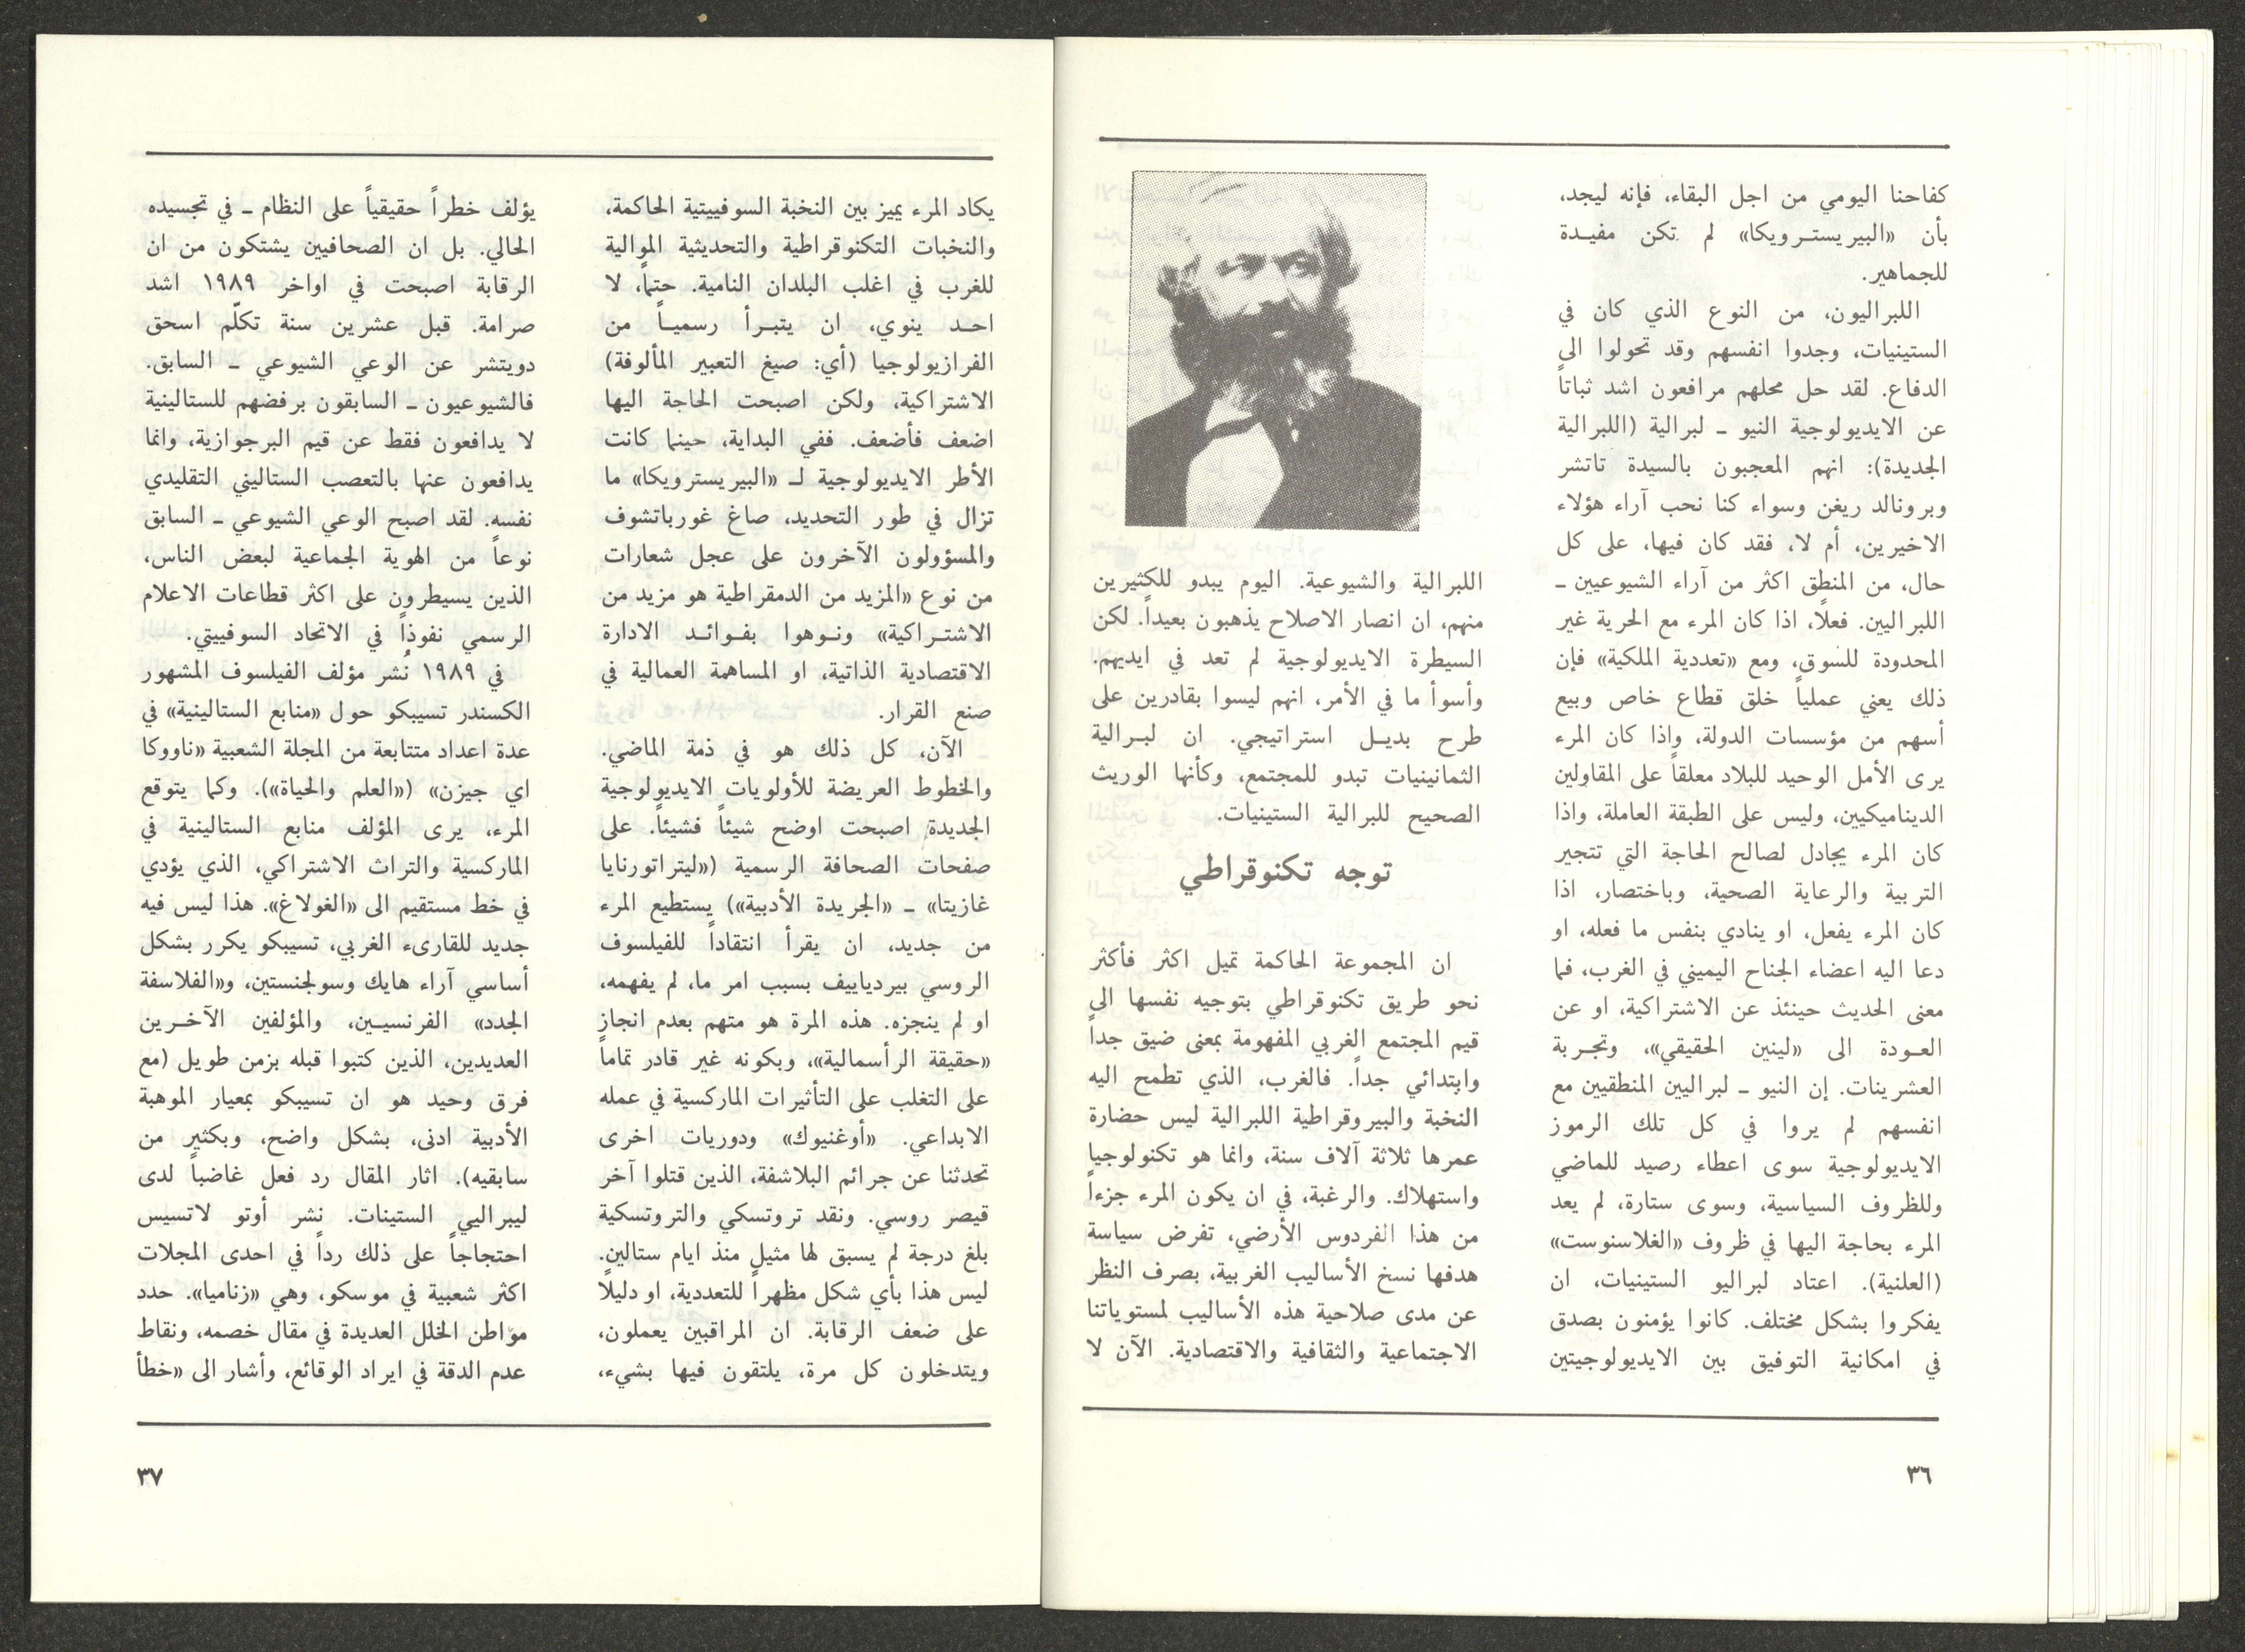 كفاحنا اليومي من اجل البقاء، فإنه ليجد،
بأن «البيريستـرويكا» لم تكن مفيـدة
للجماهير.
اللبراليون، من النوع الذي كان في
الستينيات، وجدوا انفسهم وقد تحولوا الى
الدفاع. لقد حل محلهم مرافعون اشد ثباتاً
عن الايديولوجية النيو ـ لبرالية (اللبرالية
الجديدة): انهم المعجبون بالسيدة تاتشر
وبرونالد ريغن وسواء كنا نحب آراء هؤلاء
الاخيرين، أم لا، فقد كان فيها، على كل
حال، من المنطق اكثر من آراء الشيوعيين ـ
اللبراليين. فعلًا، اذا كان المرء مع الحرية غير
المحدودة للسوق، ومع «تعددية الملكية» فإن
ذلك يعني عملياً خلق قطاع خاص وبيع
أسهم من مؤسسات الدولة، واذا كان المرء
يرى الأمل الوحيد للبلاد معلقاً على المقاولين
الديناميكيين، وليس على الطبقة العاملة، واذا
كان المرء يجادل لصالح الحاجة التي تتجير
التربية والرعاية الصحية، وباختصار، اذا
كان المرء يفعل، او ينادي بنفس ما فعله، او
دعا اليه اعضاء الجناح اليميني في الغرب، فما
معنى الحديث حينئذ عن الاشتراكية، او عن
العـودة الى «لينين الحقيقي»، وتجـربة
العشرينات. إن النيو ـ لبراليين المنطقيين مع
انفسهم لم يروا في كل تلك الرموز
الايديولوجية سوى اعطاء رصيد للماضي
وللظروف السياسية، وسوى ستارة، لم يعد
المرء بحاجة اليها في ظروف «الغلاسنوست»
(العلنية). اعتاد لبراليو الستينيات، ان
يفكروا بشكل مختلف. كانوا يؤمنون بصدق
في امكانية التوفيق بين الايديولوجيتين
اللبرالية والشيوعية. اليوم يبدو للكثيرين
منهم، ان انصار الاصلاح يذهبون بعيداً. لكن
السيطرة الايديولوجية لم تعد في ايديهم.
وأسوأ ما في الأمر، انهم ليسوا بقادرين على
طرح بديـل استراتيجي. ان لبـرالية
الثمانينيات تبدو للمجتمع، وكأنها الوريث
الصحيح للبرالية الستينيات.
توجه تكنوقراطي
ان المجموعة الحاكمة تميل اكثر فأكثر
نحو طريق تكنوقراطي بتوجيه نفسها الى
قيم المجتمع الغربي المفهومة بمعنى ضيق جداً
وابتدائي جداً. فالغرب، الذي تطمح اليه
النخبة والبيروقراطية اللبرالية ليس حضارة
عمرها ثلاثة آلاف سنة، وانما هو تكنولوجيا
واستهلاك. والرغبة، في ان يكون المرء جزءاً
من هذا الفردوس الأرضي، تفرض سياسة
هدفها نسخ الأساليب الغربية، بصرف النظر
عن مدى صلاحية هذه الأساليب لمستوياتنا
الاجتماعية والثقافية والاقتصادية. الآن لا
٣٦
يكاد المرء يميز بين النخبة السوفييتية الحاكمة،
والنخبات التكنوقراطية والتحديثية الموالية
للغرب في اغلب البلدان النامية. حتماً، لا
احـد ينوي، ان يتبـرأ رسميـاً من
الفرازيولوجيا (أي: صيغ التعبير المألوفة)
الاشتراكية، ولكن اصبحت الحاجة اليها
اضعف فأضعف. ففي البداية، حينما كانت
الأطر الايديولوجية لـ «البيريسترويكا» ما
تزال في طور التحديد، صاغ غورباتشوف
والمسؤولون الآخرون على عجل شعارات
من نوع «المزيد من الدمقراطية هو مزيد من
الاشتـراكية» ونـوهوا بفـوائـد الادارة
الاقتصادية الذاتية، او المساهمة العمالية في
صنع القرار.
الآن، كل ذلك هو في ذمة الماضي.
والخطوط العريضة للأولويات الايديولوجية
الجديدة اصبحت اوضح شيئاً فشيئاً. على
صفحات الصحافة الرسمية («ليتراتورنايا
غازيتا» ـ «الجريدة الأدبية») يستطيع المرء
من جديد، ان يقرأ انتقاداً للفيلسوف
الروسي بيردياييف بسبب امر ما، لم يفهمه،
او لم ينجزه. هذه المرة هو متهم بعدم انجاز
«حقيقة الرأسمالية»، وبكونه غير قادر تماماً
على التغلب على التأثيرات الماركسية في عمله
الابداعي. «أوغنيوك» ودوريات اخرى
تحدثنا عن جرائم البلاشفة، الذين قتلوا آخر
قيصر روسي. ونقد تروتسكي والتروتسكية
بلغ درجة لم يسبق لها مثيل منذ ايام ستالين.
ليس هذا بأي شكل مظهراً للتعددية، او دليلًا
على ضعف الرقابة. ان المراقبين يعملون،
ويتدخلون كل مرة، يلتقون فيها بشيء،
يؤلف خطراً حقيقياً على النظام ـ في تجسيده
الحالي. بل ان الصحافيين يشتكون من ان
الرقابة اصبحت في اواخر ١٩٨٩ اشد
صرامة. قبل عشرين سنة تكلّم اسحق
دويتشر عن الوعي الشيوعي ـ السابق.
فالشيوعيون ـ السابقون برفضهم للستالينية
لا يدافعون فقط عن قيم البرجوازية، وانما
يدافعون عنها بالتعصب الستاليني التقليدي
نفسه. لقد اصبح الوعي الشيوعي ـ السابق
نوعاً من الهوية الجماعية لبعض الناس،
الذين يسيطرون على اكثر قطاعات الاعلام
الرسمي نفوذاً في الاتحاد السوفييتي.
في ١٩٨٩ نُشر مؤلف الفيلسوف المشهور
الكسندر تسيبكو حول «منابع الستالينية» في
عدة اعداد متتابعة من المجلة الشعبية «ناووكا
اي جيزن» («العلم والحياة»). وكما يتوقع
المرء، يرى المؤلف منابع الستالينية في
الماركسية والتراث الاشتراكي، الذي يؤدي
في خط مستقيم الى «الغولاغ». هذا ليس فيه
جديد للقارىء الغربي، تسيبكو يكرر بشكل
أساسي آراء هايك وسولجنستين، و«الفلاسفة
الجدد» الفرنسيـين، والمؤلفين الآخـرين
العديدين، الذين كتبوا قبله بزمن طويل (مع
فرق وحيد هو ان تسيبكو بمعيار الموهبة
الأدبية ادنى، بشكل واضح، وبكثير من
سابقيه). اثار المقال رد فعل غاضباً لدى
ليبراليي الستينات. نشر أوتو لاتسيس
احتجاجاً على ذلك رداً في احدى المجلات
اكثر شعبية في موسكو، وهي «زناميا». حدد
مواطن الخلل العديدة في مقال خصمه، ونقاط
عدم الدقة في ايراد الوقائع، وأشار الى «خطأ
٣٧